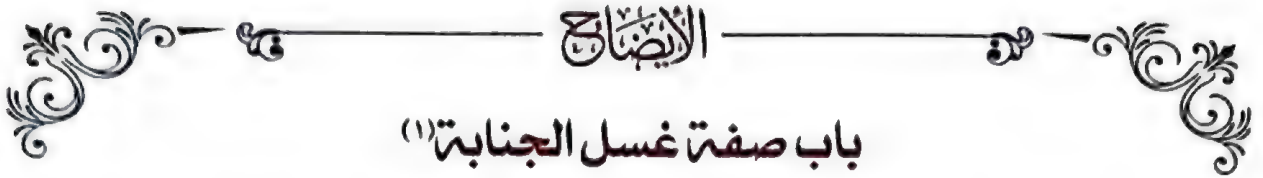 الإيضاح
باب صفة غسل الجنابة(١)